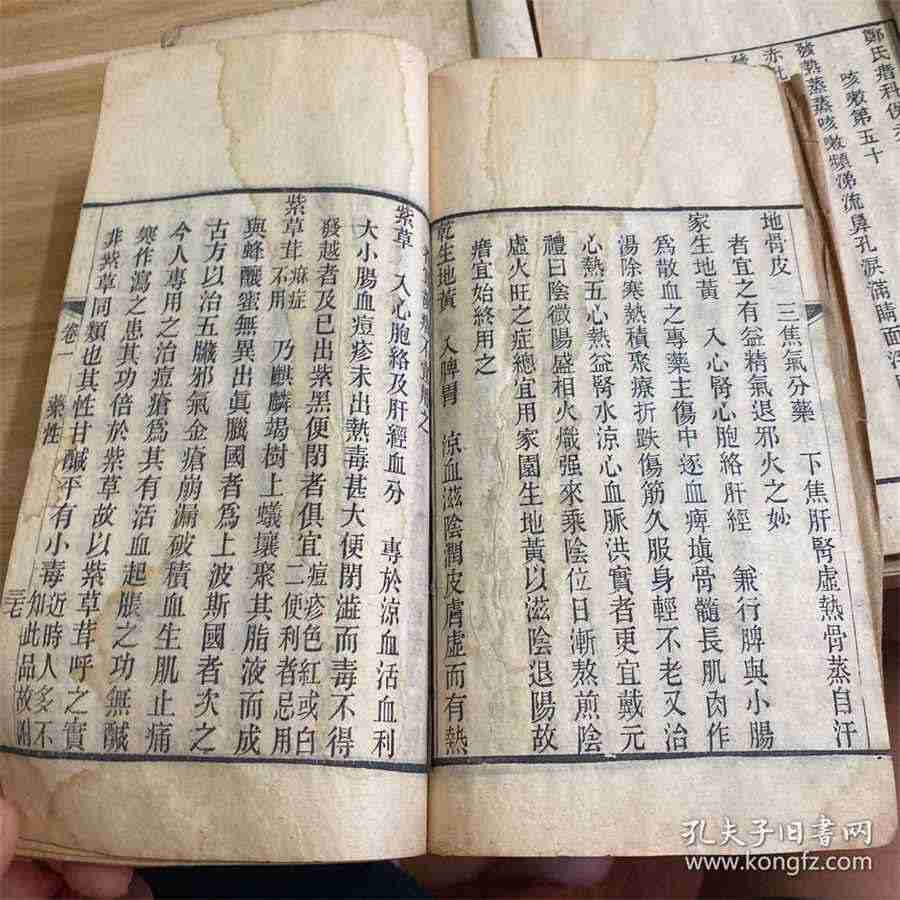 地骨皮 三焦氣分藥 下焦肝腎虛熱骨蒸自汗
者宜之有益精氣退邪火之妙
家生地黃 入心腎心胞絡肝經 兼行脾與小腸
為散血之專藥主傷中逐血痺塡骨髓長肌肉作
湯除寒熱積聚療折跌傷筋久服身輕不老又治
心熱五心熱益腎水涼心血脈洪實者更宜戴元
禮曰陰微陽盛相火熾强來乘陰位日漸熬煎陰
虛火旺之症總宜用家園生地黃以滋陰退陽故
瘄宜始終用之
乾生地黃 入脾胃 涼血滋陰潤皮膚虛而有熱
之
紫草 入心胞絡及肝經血分 專於涼血活血利
大小腸血痘疹未出熱毒甚大便閉澁而毒不得
發越者及已出紫黑便閉者俱宜痘疹色紅或白
二便利者忌用
紫草茸 痲症不用 乃麒麟竭樹上蟻壤聚其脂液而成
與蜂釀蜜無異出眞臘國者為上波斯國者次之
古方以治五臟邪氣金瘡崩漏破積血生肌止痛
今人專用之治痘瘡為其有活血起脹之功無鹹
寒作瀉之患其功倍於紫草故以紫草茸呼之實
非紫草同類也其性甘鹹平有小毒近時人多不
知此品故
卷一 藥性
鄭氏瘄科保
咳嗽第五十
發熱蒸蒸咳嗽頻涕流鼻孔淚滿
赤
發
孔夫子旧书网
www.kongfz.com